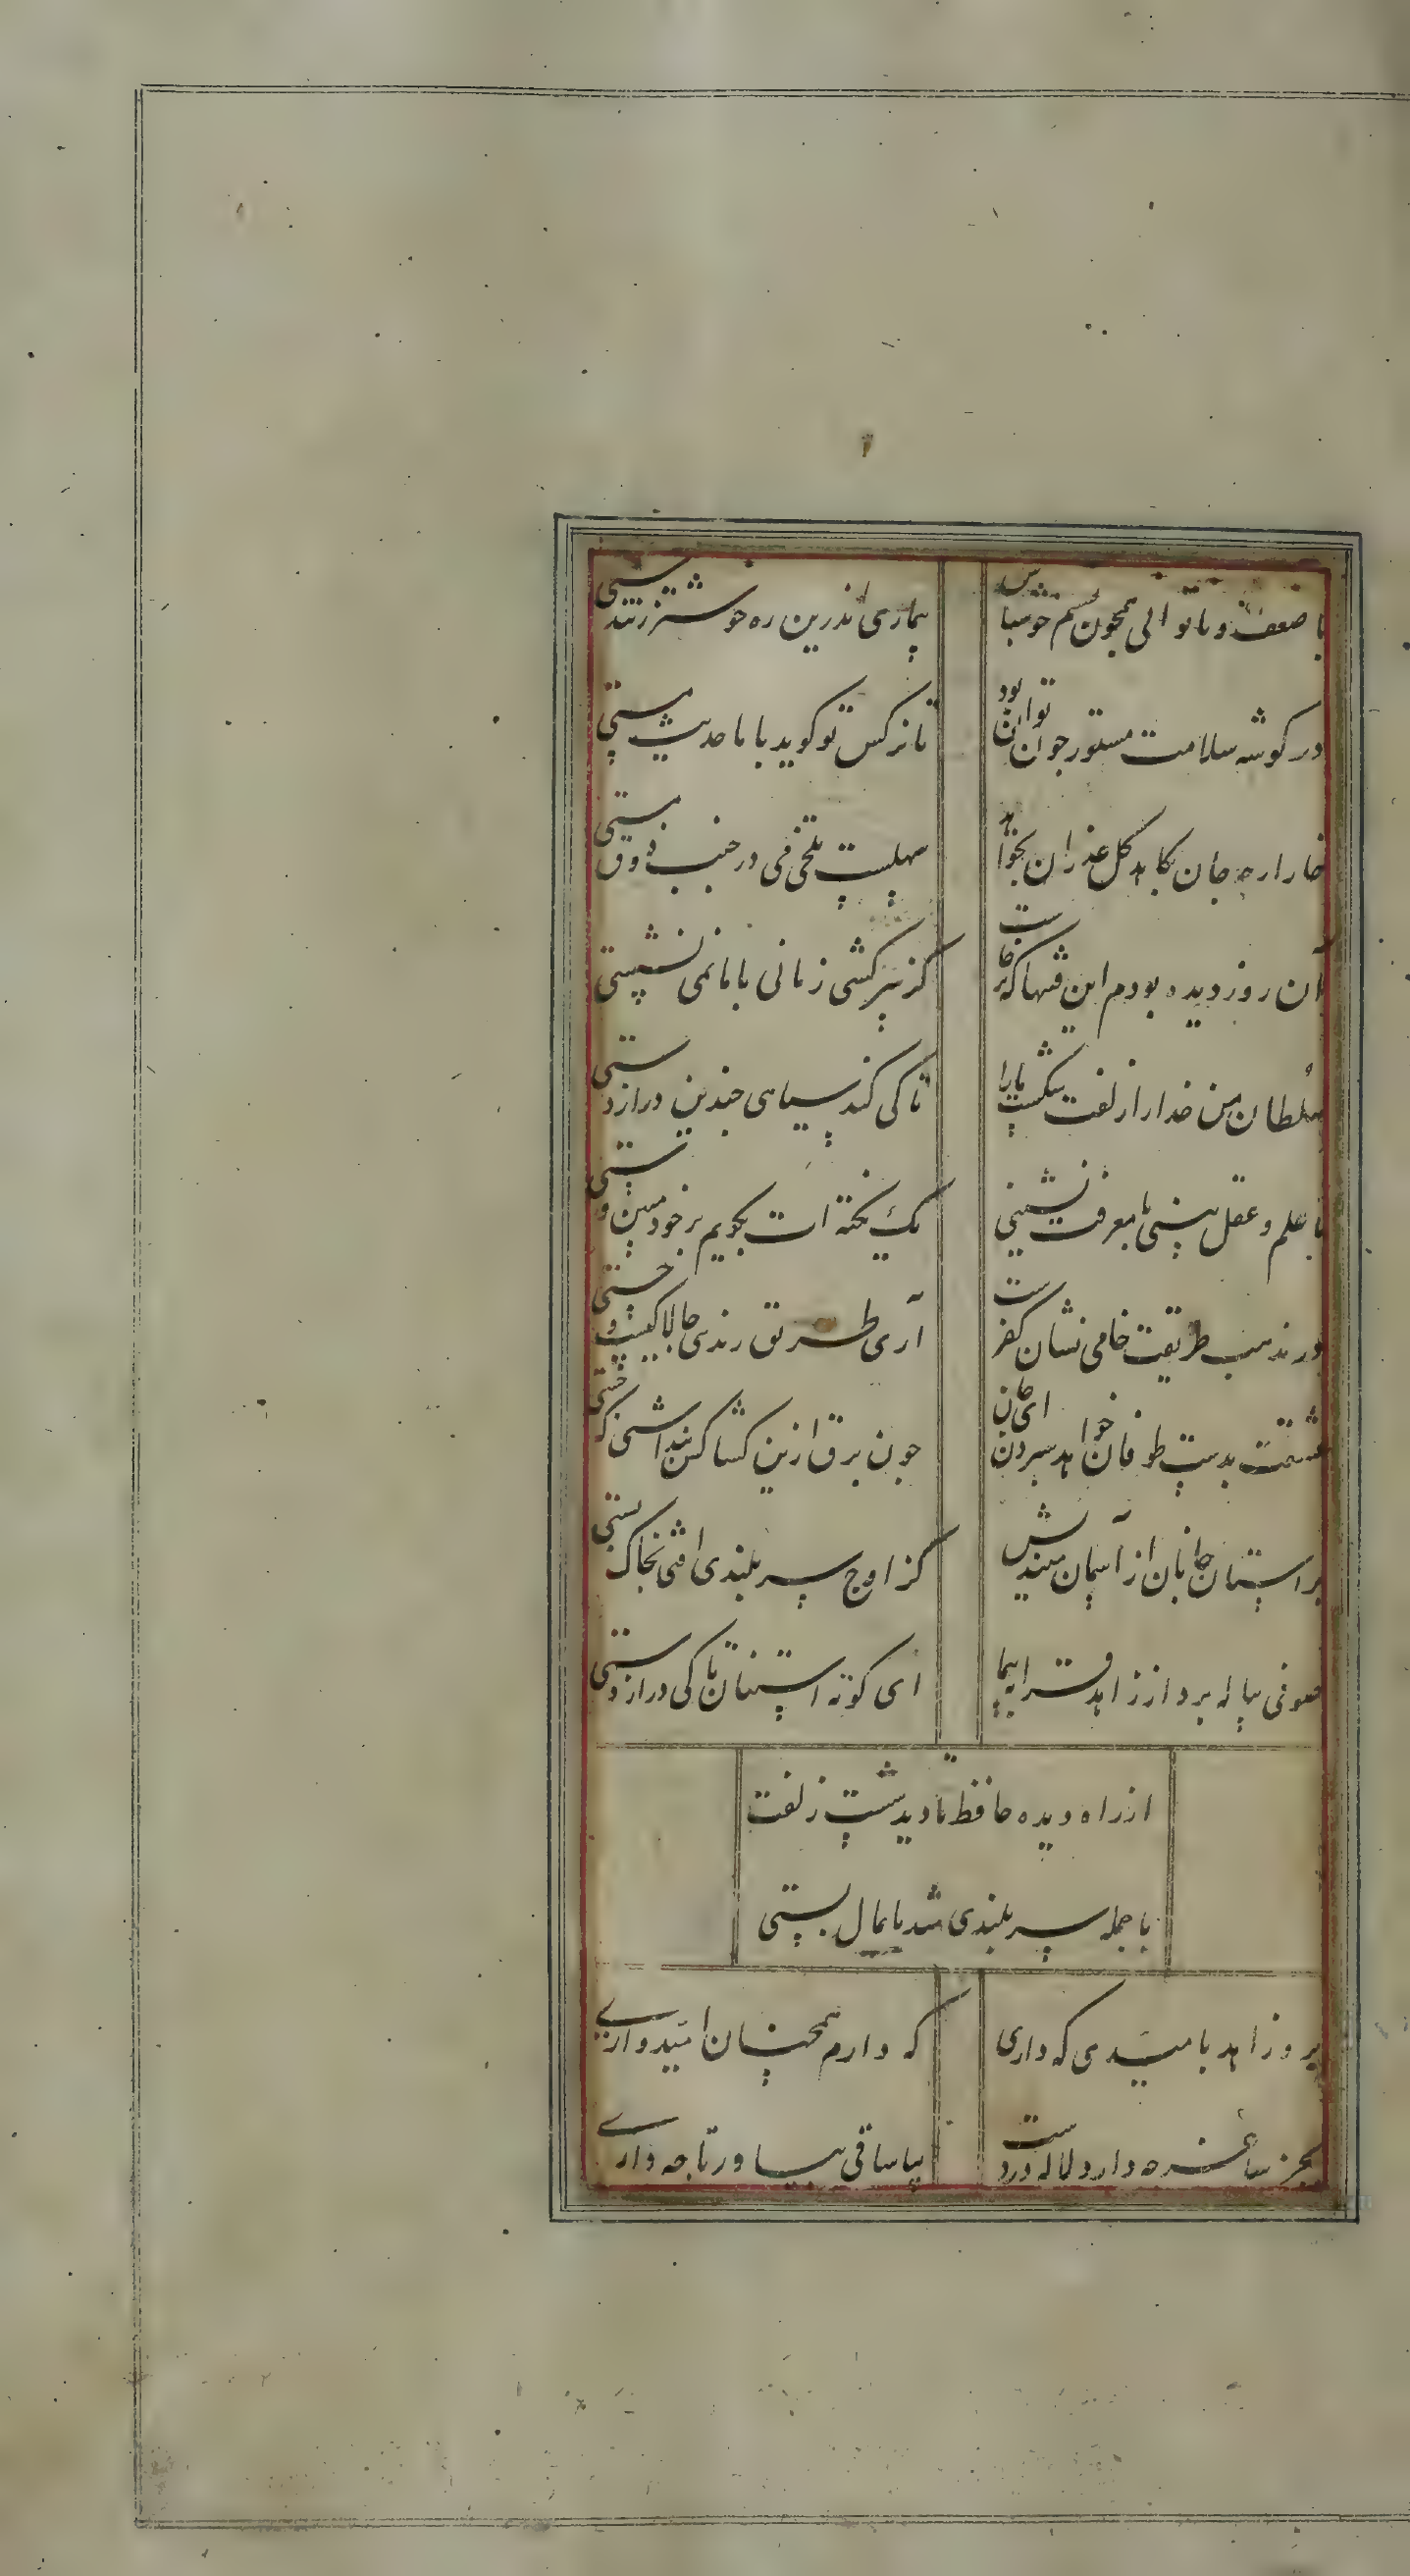 با ضعف و ناتوانی همچون نسیم خوش باش
بیماری اندرین ره خوشتر ز تندرستی
در کوشه سلامت مستور چون توان بود
تا نرکس تو کوید با ما حدیث مستی
خار ارچه جان بکاهد کل عذر آن بخواهد
سهلست تلخی می در جنب ذوق مستی
آن روز دیده بودم این فتنها که برخاست
کز سرکشی زمانی با ما نمی نشستی
سلطان من خدا را زلفت شکست ما را
تا کی کند سیاهی چندین درازدستی
تا علم و عقل بینی بی معرفت نشینی
یک نکته ات بکویم خود مبین و رستی
در مذهب طریقت خامی نشان کفرست
آری طریق رندی چالاکیست و چستی
عشقت بدست طوفان خواهد سپردن ای جان
چون برق ازین کشاکش پنداشتی که جستی
بر استان جانان از آسمان میندیش
کز اوج سربلندی افتی بخاک پستی
صوفی پیاله پرداز زاهد قرابه پیما
ای کوته استینان تا کی درازدستی
از راه دیده حافظ تا دید شست زلفت
با جمله سربلندی شد پایمال پستی
برو زاهد بامیدی که داری
که دارم همچنان امیدواری
بجز ساغر چه دارد لاله در دست
بیا ساقی بیاور تا چه داری